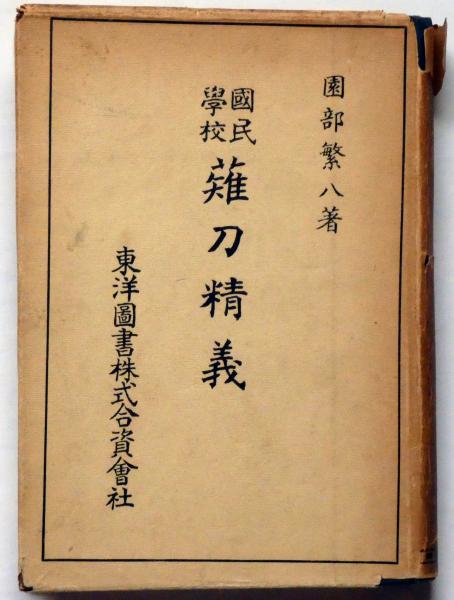 園部繁八著
國民學校 薙刀精義
東洋圖書株式合資會社